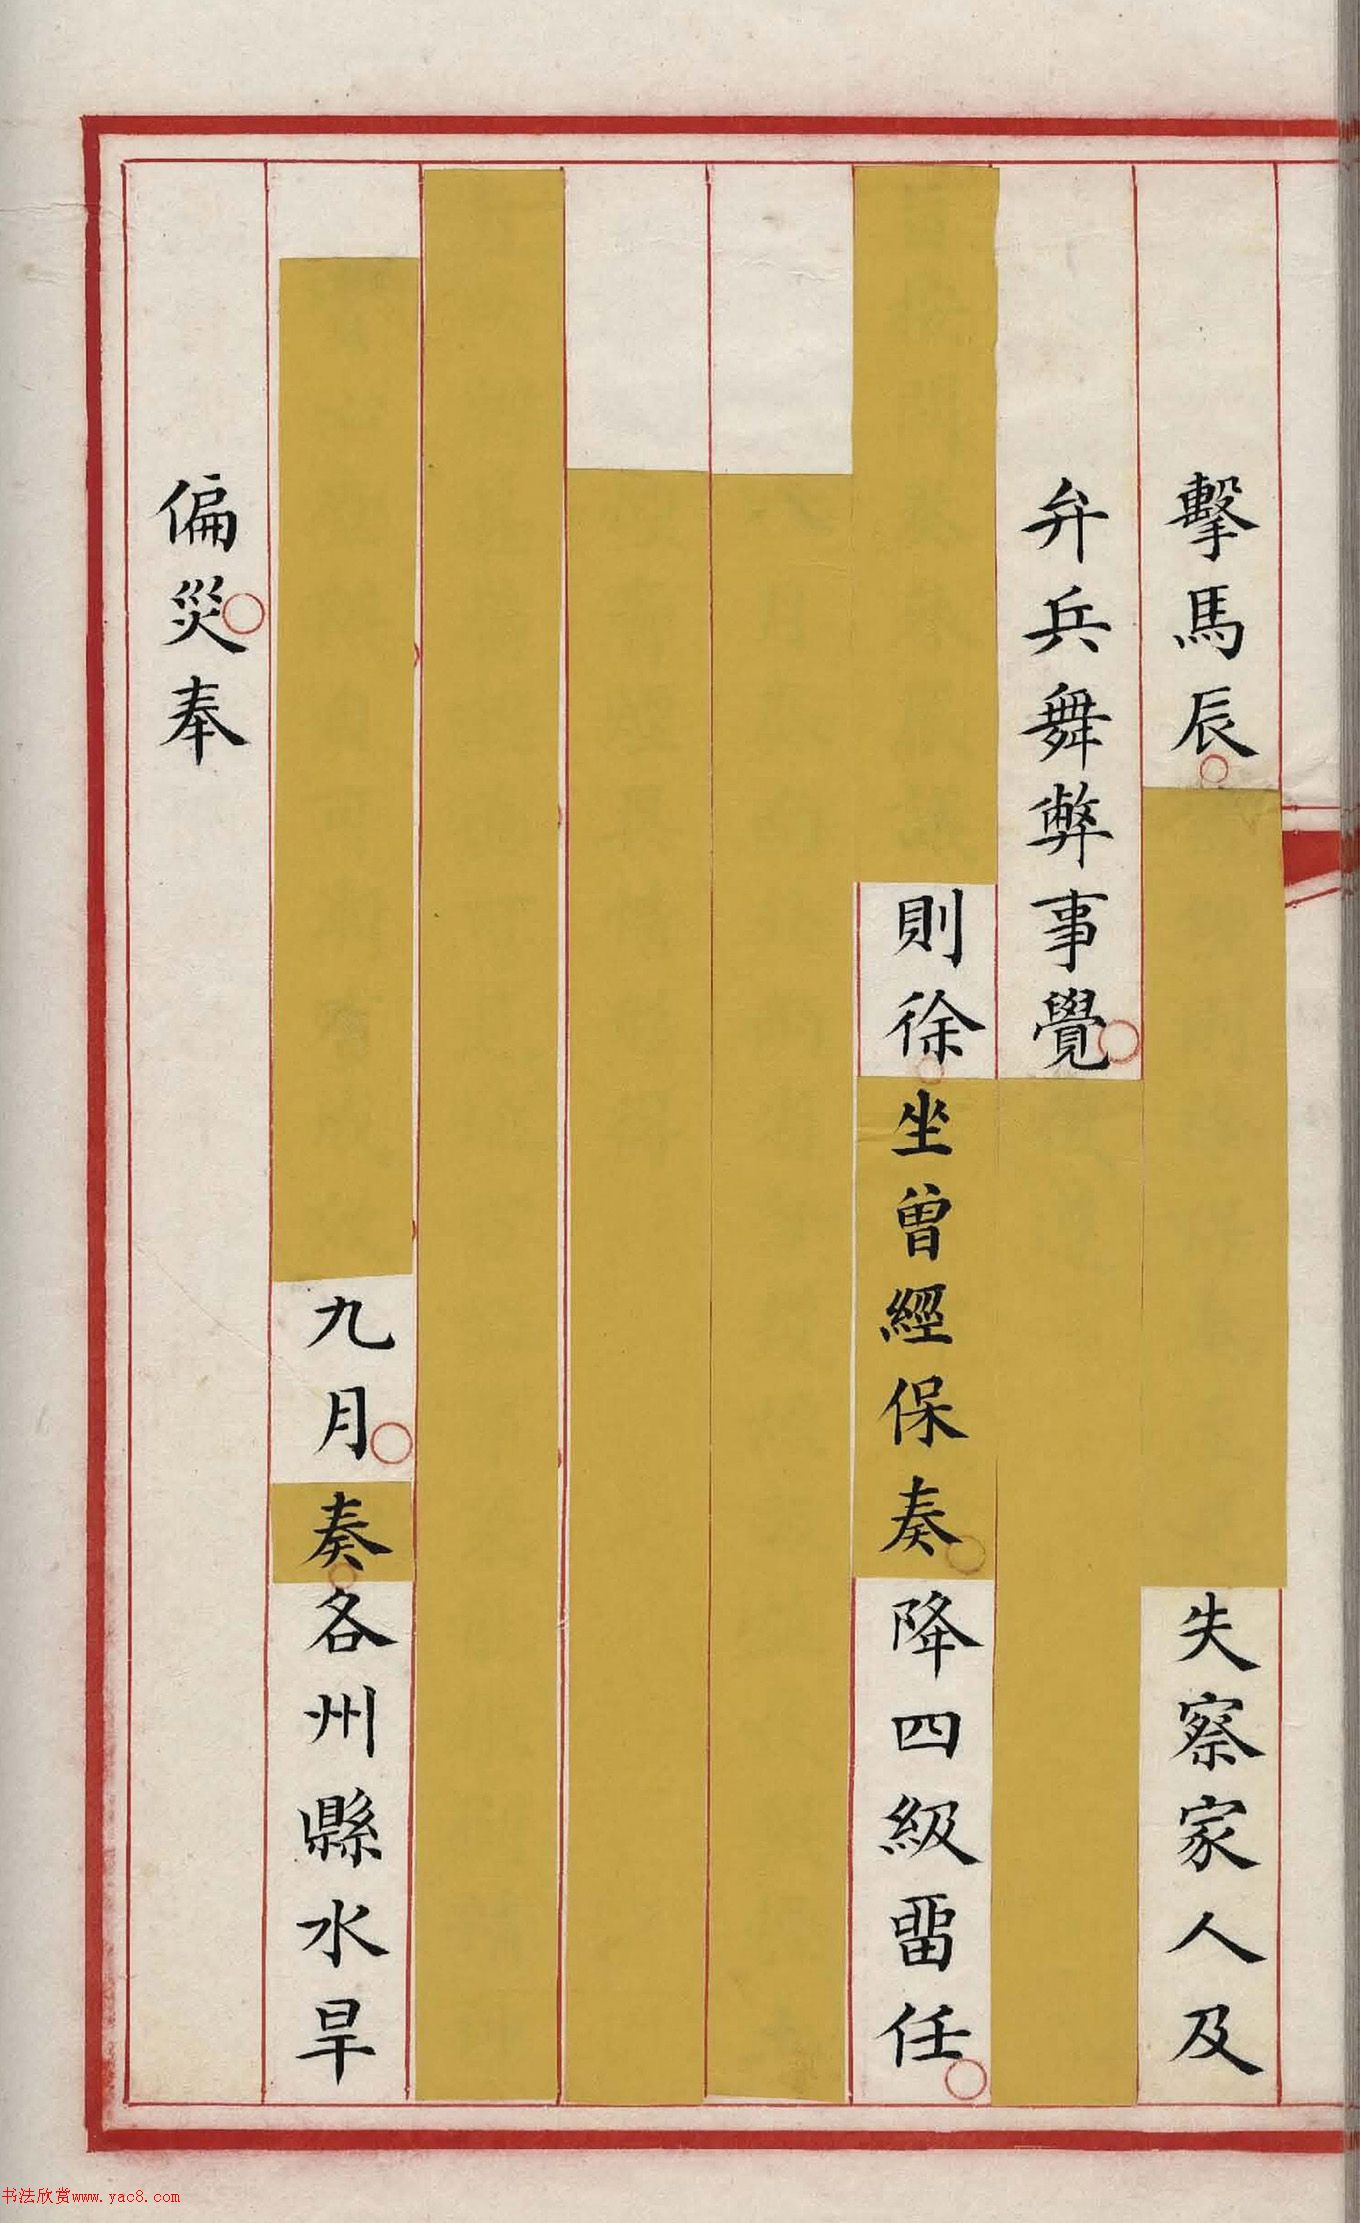 擊馬辰失察家人及
弁兵舞弊事覺
則徐坐曾經保奏降四級畱任
九月奏各州縣水旱
偏災奉
书法欣赏www.yac8.com